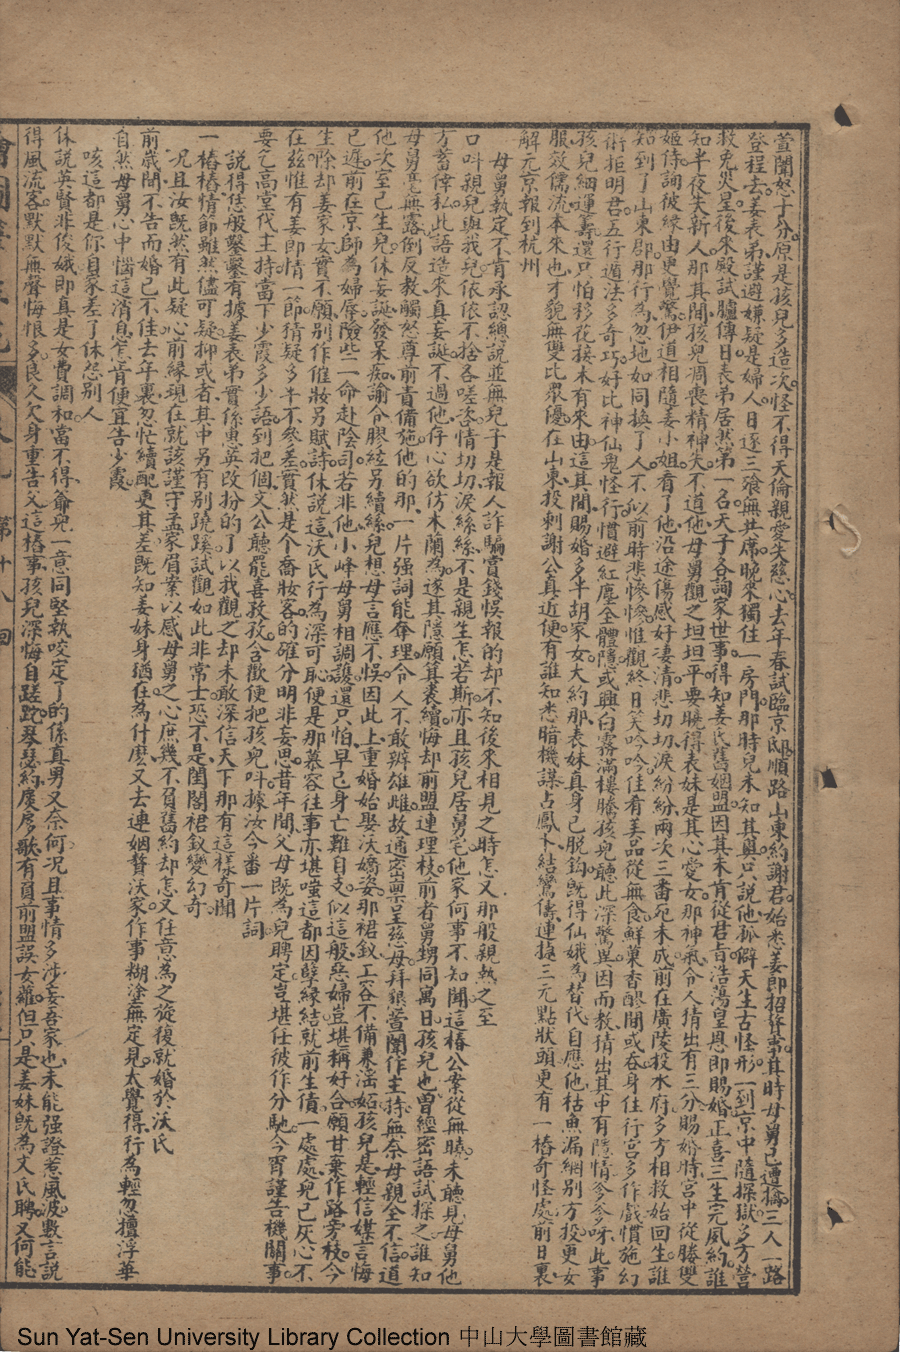 萱闈怒子分原是孩兒多造次怪不得天倫親愛失慈心去年春試臨京邸順路山東約謝君始悉姜郎招許事其時母舅已遭擒三人一路
登程去姜表弟謹避嫌疑是婦人日逐三飱無共席晚來獨住一房門那時兒未知其與只說他孤僻天生古怪形一到京中隨探獄多方營
救免災星後來殿試臚傳日表弟居然第一名天子各詢家世事得知姜氏舊姻盟因其未肯從君旨浩蕩皇恩即賜婚正喜三生完鳳約誰
知半夜失新人那其間孩兒凋喪精神失不道他母舅觀之坦坦平要曉得表妹是其心愛女那神氣令人猜出有三分賜婚時宮中從媵雙
姬侍詢彼緣由更覺驚伊道相隨姜小姐看了他沿途傷感好凄清悲切切淚紛紛兩次三番宛未成前在廣陵投水府多方相救始回生誰
知到了山東郡那行為忽地如同換了人不似前時悲慘慘惟觀終日笑吟吟住有善品從無食鮮菓香醪間或吞身住行宮多作戲慣施幻
術拒明君五行遁法多奇巧好比神仙鬼怪行慣避紅塵全體隱或興白霧滿樓騰孩兒聽此深驚異因而教猜出其中有隱情爹爹呀此事
孩兒細運籌還只怕移花接木有來由這其間賜婚多半胡家女大約那表妹真身已脫鈎既得仙娥為替代自應他枯魚漏網別方投更女
服效儒流本來也才貌無雙比衆優在山東投刺謝公真近便有誰知悉暗機謀占鳳卜結鸞儔連捷三元點狀頭更有一樁奇怪處前日裏
解元京報到杭州
母舅執定不肯承認總說並無兒子是報人詐騙賞錢悞報的却不知後來相見之時怎又那般親熱之至
口呌親兒與我兒依依不捨各嗟咨情切切淚絲絲不是親生怎若斯亦且孩兒居舅宅他家何事不知聞這樁公案從無曉未聽見母舅他
方蓄俾私此語造來真妄誕不過他仔心欲仿木蘭為遂其隱願箕裘續悔却前盟連理枝前者舅甥同寓日孩兒也曾經密語試探之誰知
母舅毫無露倒反教觸怒尊前責備施他的那一片強詞能奪理令人不敢辨雄雌故通密禀呈慈母拜狠萱闈作主持無奈母親全不信道
他次室已生兒休妄誕發呆痴諭令膠絃另續絲兒想母言應不悞因此上重婚始娶沃嬌姿那裙釵工容不備兼滛妬孩兒是輕信媒言悔
已遲前在京師為婦孱險些二命赴陰司若非他小峰母舅相調護還只怕早已身亡難自支似這般惡婦豈堪稱好合願甘棄作路旁枝今
生除却姜家女實不願別作催妝另賦詩休說這沃氏行為深可恥便是那慕容往事亦堪嗤這都因孽緣結就前生債一處處兒已灰心不
在絲惟有姜郎情一節猜疑多半不參差實然是个喬妝客的確分明非妄思昔年間父母既為兒聘定豈堪任彼作分馳今宵謹告機關事
要乞高堂代主持當下少霞多少語到把個文公聽罷喜孜孜含歡便把孩兒呌據汝今番一片詞
說得恁般鑿鑿有據姜表弟實係惠英改扮的了以我觀之却未敢深信天下那有這樣奇聞
一樁樁情節雖然儘可疑抑或者其中另有別蹺蹊試觀如此非常士恐不是閨閣裙釵變幻奇
况且汝既然有此疑心前緣現在就該謹守孟家眉案以感母舅之心庶幾不負舊約却怎又任意為之旋復就婚於沃氏
前歲間不告而婚已不佳去年裏忽忙續配更其差既知姜妹身猶在為什麽又去連姻贅沃家作事糊塗無定見太覺得行為輕忽擅浮華
自然母舅心中惱這消息怎肯便宜告少霞
咳這都是你自家差了休怨別人
休說英賢非俊娥即真是女費調和當不得爺兒一意同堅執咬定了的係真男又奈何况且事情多涉妄吾家也未能强證惹風波數言說
得風流客默默無聲悔恨多良久欠身重告父這樁事孩兒深悔自蹉跎琴瑟約慶歌有負前盟誤女蘿但只是姜妹既為文氏聘又何能
第十八回
Sun Yat-Sen University Library Collection 中山大學圖書館藏